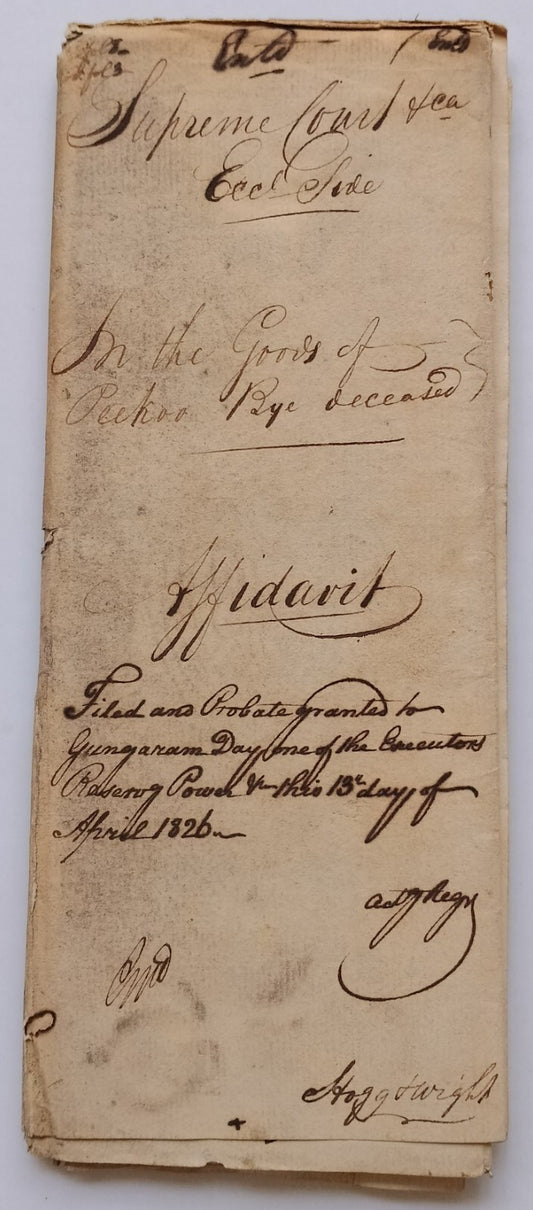 Entd Entd
Supreme Court &ca
Eccl Side
In the Goods of
Peekoo Bye deceased
Affidavit
Filed and Probate granted to
Gungaram Day one of the Executors
Reservg Power &c this 13th day of
April 1826
Actg Regr
Hogg & Wight